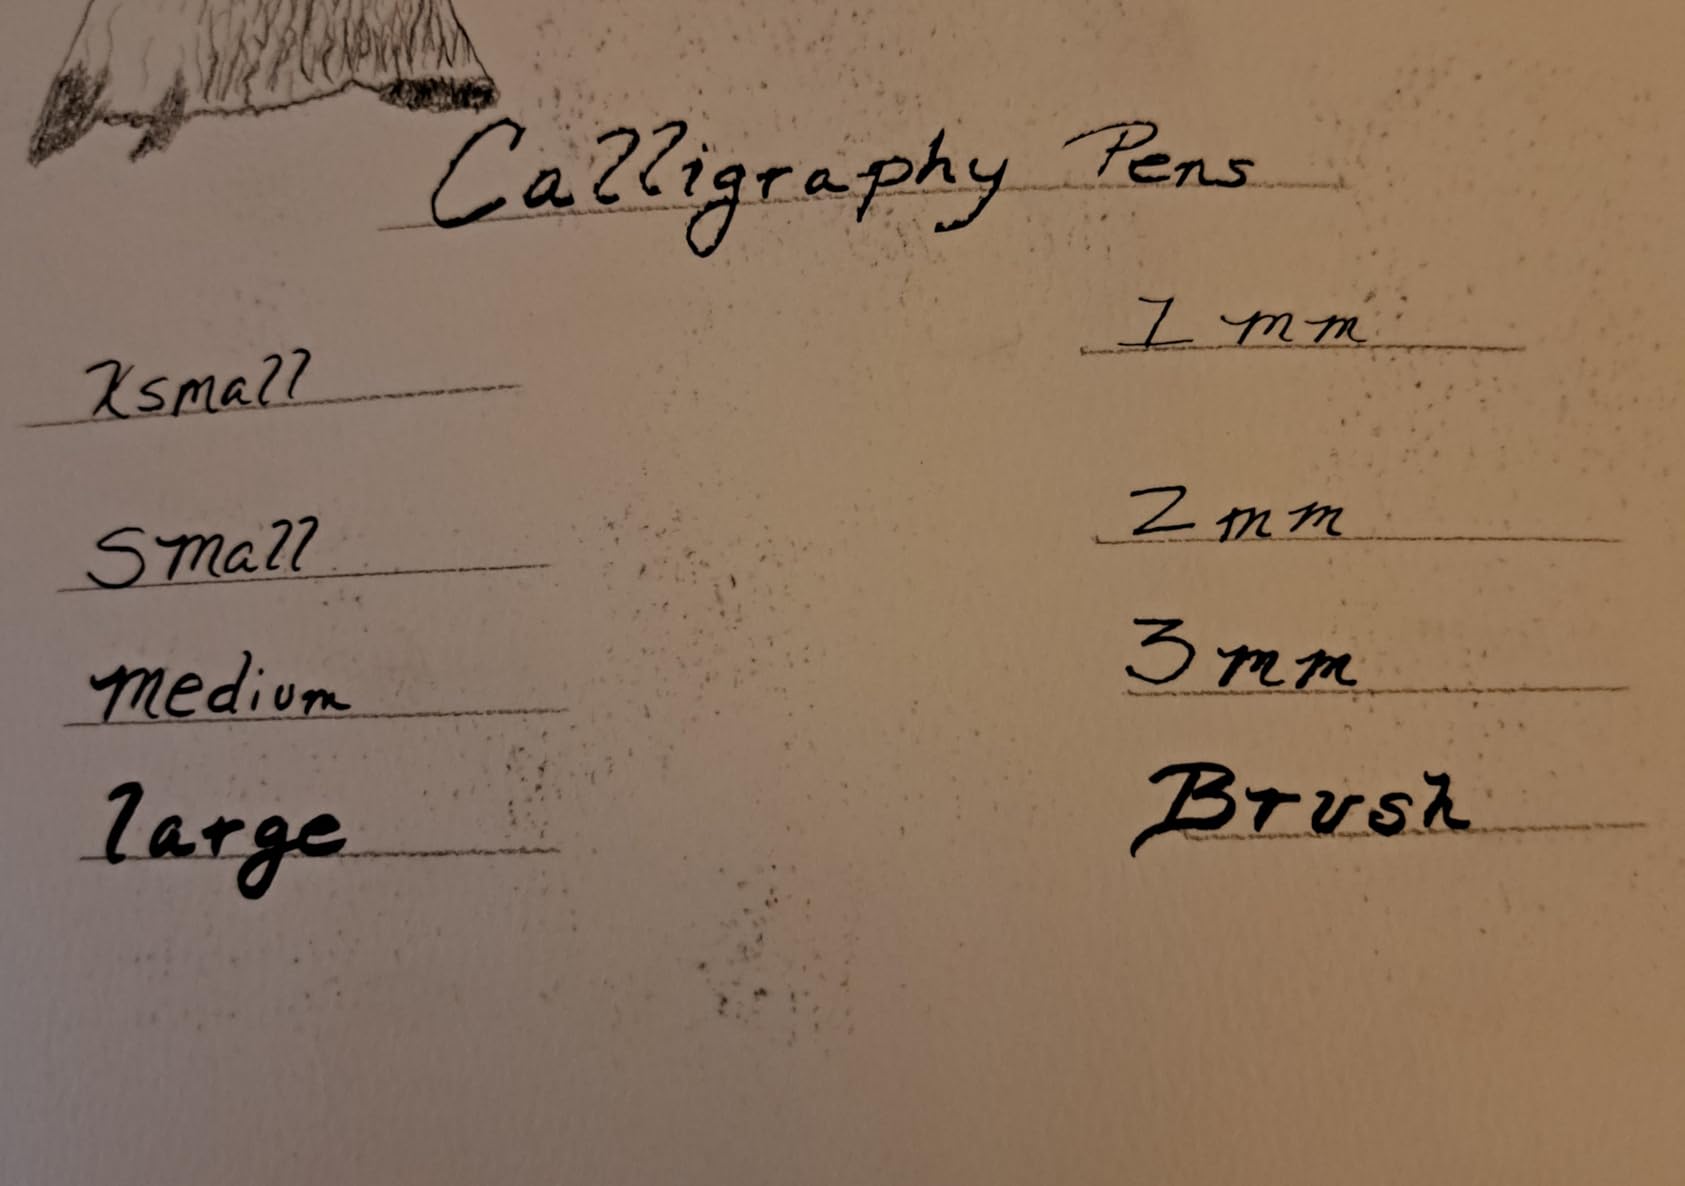 Calligraphy Pens
Xsmall
Small
medium
large
1 mm
2 mm
3 mm
Brush